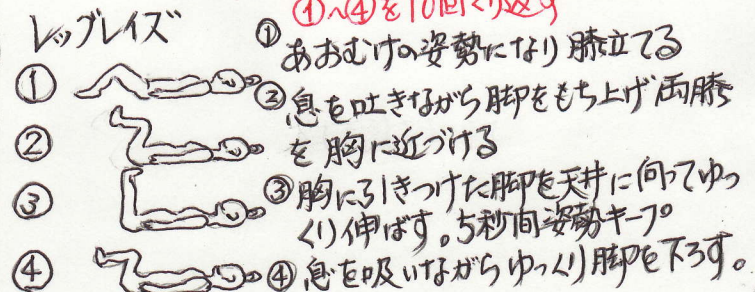 ①~④を10回くり返す
レッグレイズ
①
②
③
④
①あおむけの姿勢になり膝立てる
②息を吐きながら脚をもち上げ両膝
を胸に近づける
③胸に引きつけた脚を天井に向ってゆっ
くり伸ばす。5秒間姿勢キープ
④息を吸いながらゆっくり脚を下ろす。